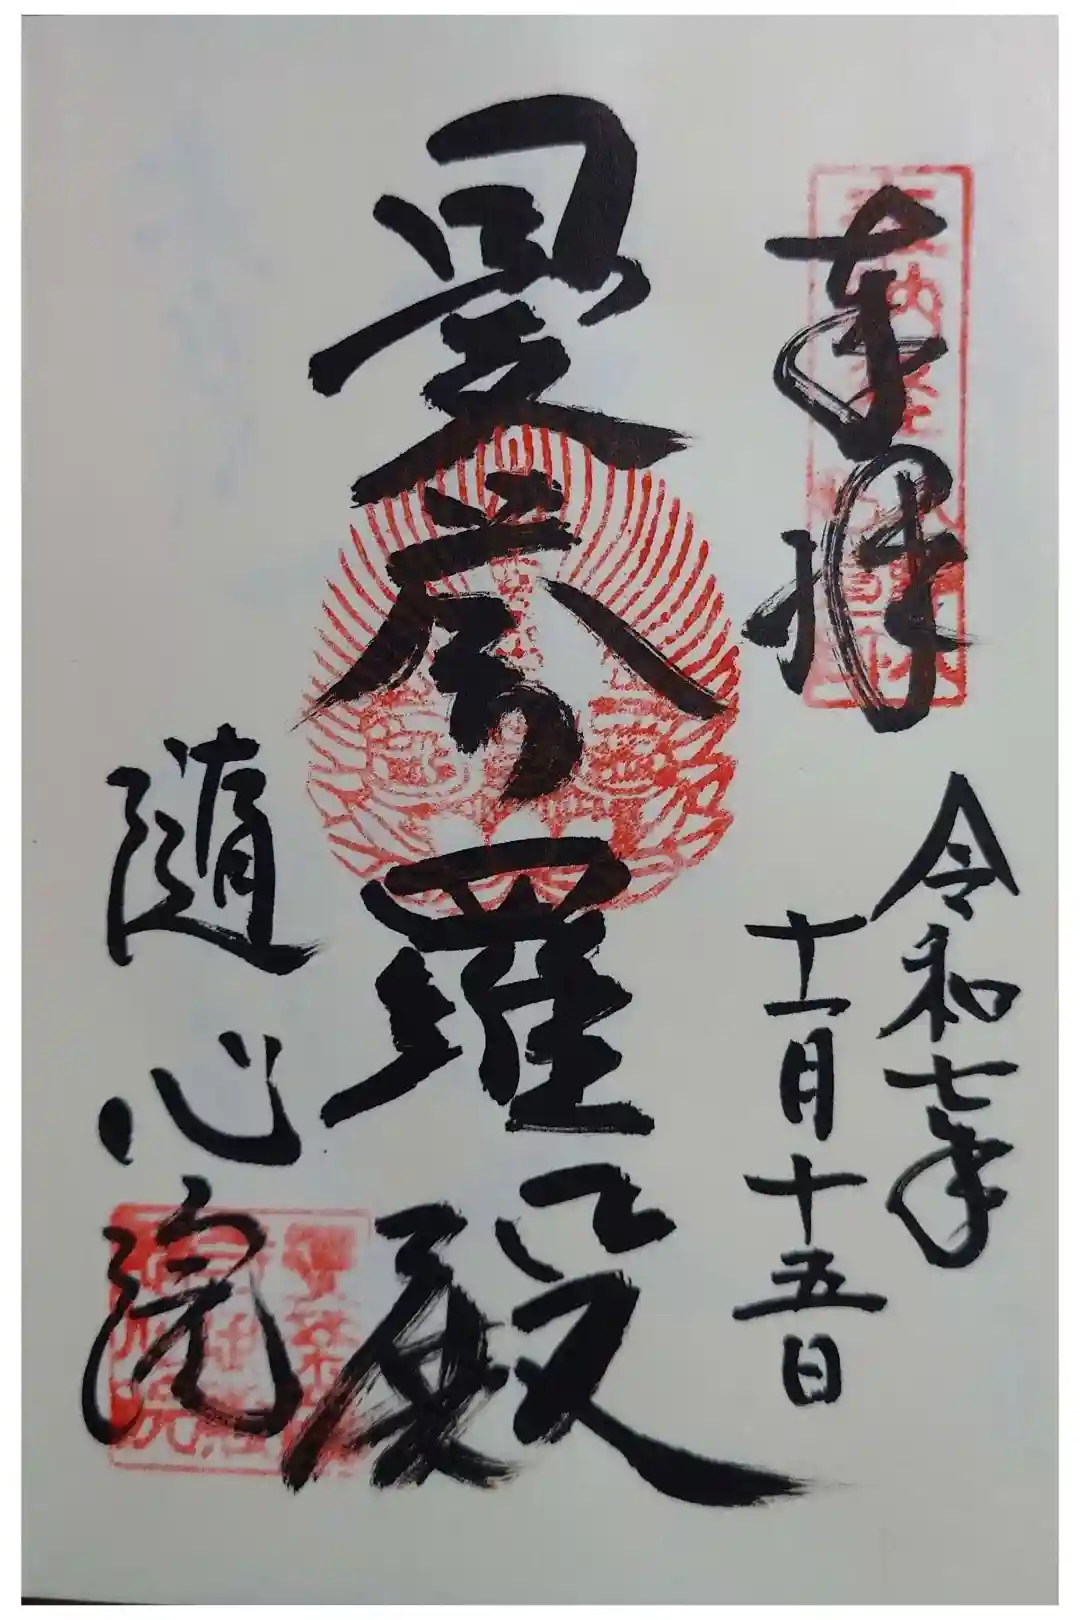 奉拝
令和七年
十一月十五日
曼荼羅殿
随心院